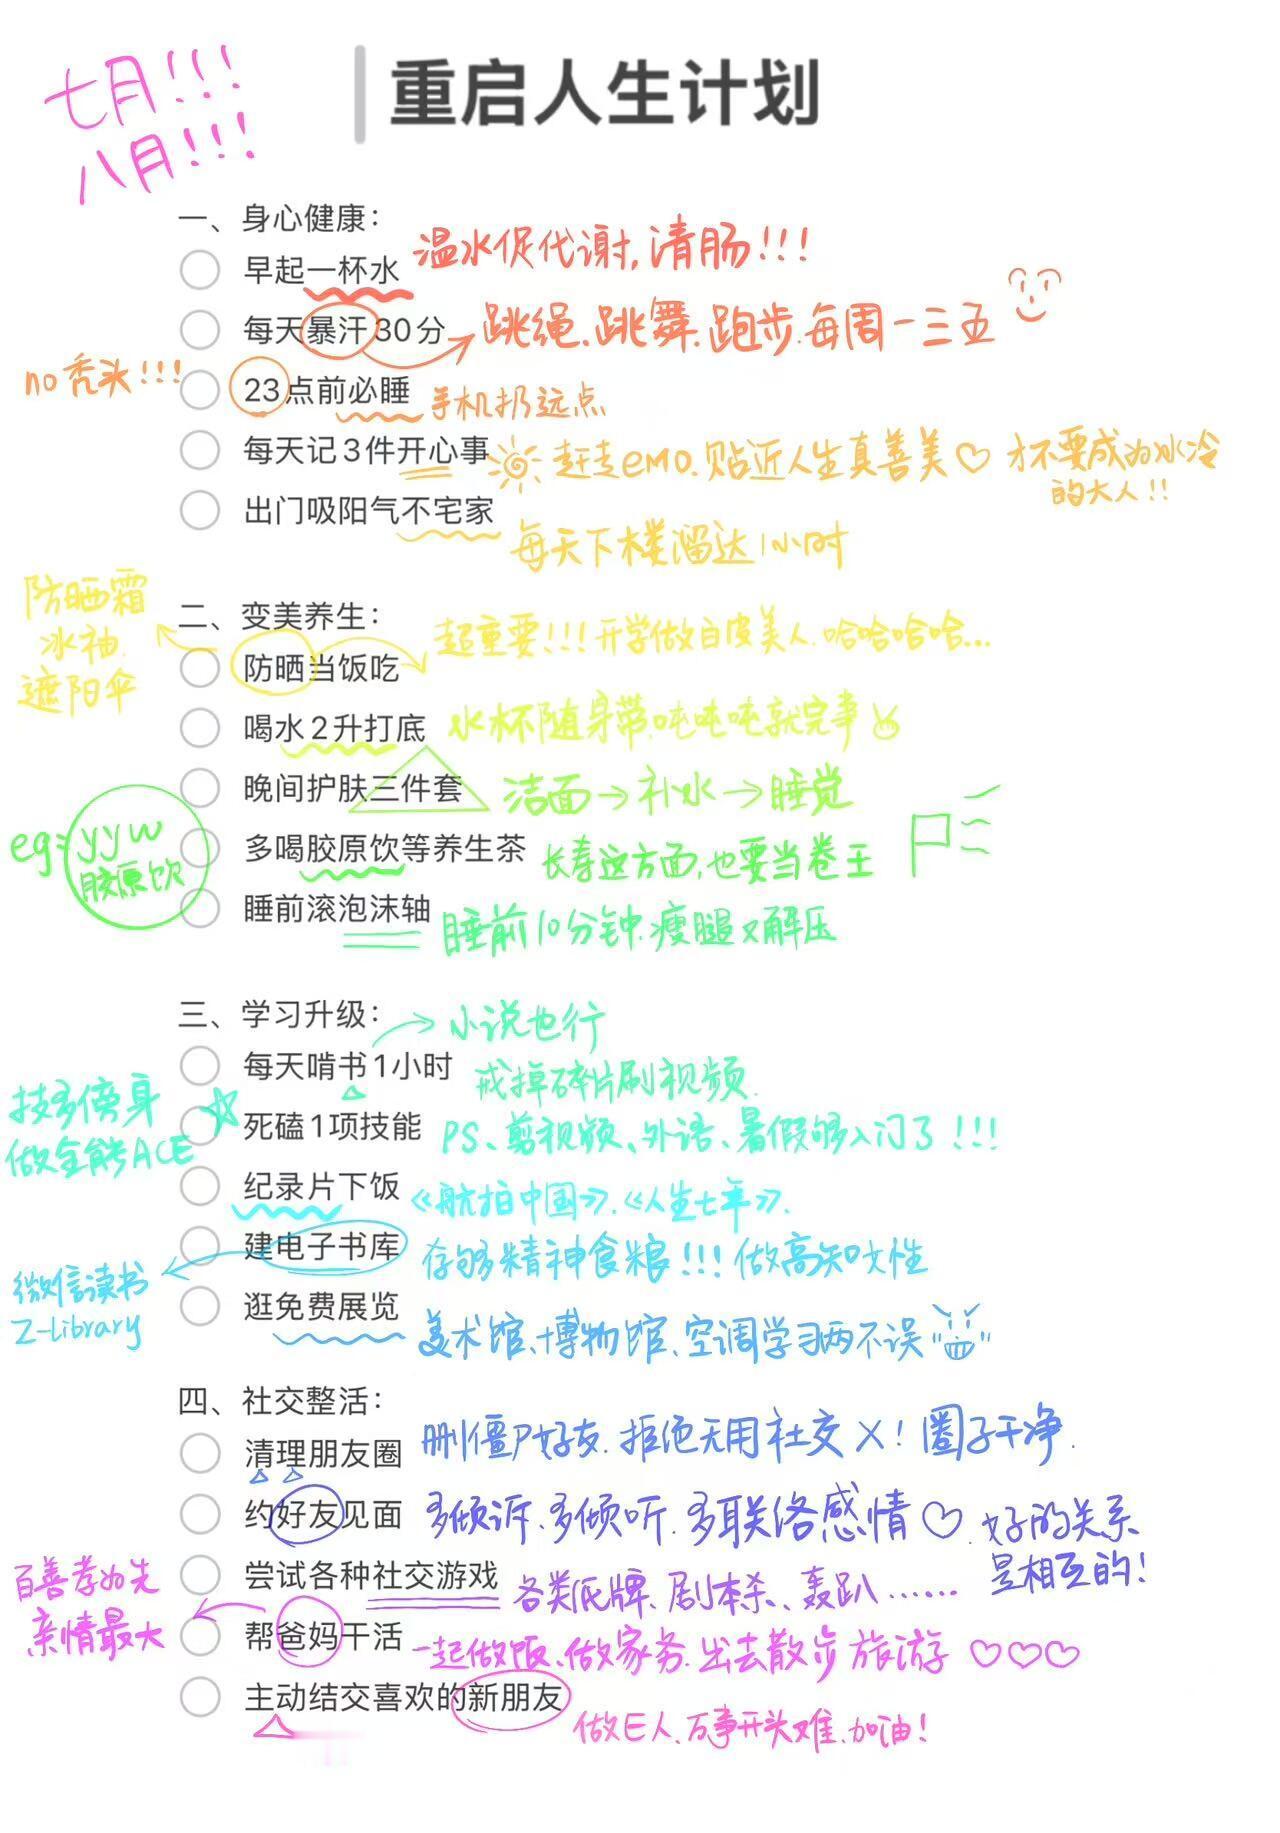 七月!!!
八月!!!
重启人生计划
一、身心健康:
早起一杯水 温水促代谢,清肠!!!
每天暴汗30分 跳绳、跳舞、跑步、每周一三五
no秃头!!!
23点前必睡 手机扔远点
每天记3件开心事 赶走emo、贴近人生真善美♡ 才不要成为冰冷
的大人!!
出门吸阳气不宅家 每天下楼溜达1小时
防晒霜
冰袖、
遮阳伞
二、变美养生:
防晒当饭吃 超重要!!!开学做白皮美人、哈哈哈哈...
喝水2升打底 水杯随身带、吨吨吨就完事
晚间护肤三件套 洁面→补水→睡觉
eg: yyw
胶原饮
多喝胶原饮等养生茶 长寿这方面,也要当卷王
睡前滚泡沫轴 睡前10分钟、瘦腿又解压
三、学习升级:
小说也行
每天啃书1小时 戒掉碎片刷视频、
技多傍身
做全能ACE
死磕1项技能 PS、剪视频、外语、暑假够入门了!!!
纪录片下饭 《航拍中国》、《人生七年》、
建电子书库 存够精神食粮!!!做高知女性
微信读书
Z-Library
逛免费展览 美术馆、博物馆、空调学习两不误
四、社交整活:
清理朋友圈 删僵尸好友、拒绝无用社交X!圈子干净、
约好友见面 多倾诉、多倾听、多联络感情♡、好的关系
是相互的!
尝试各种社交游戏 各类纸牌、剧本杀、轰趴……
百善孝为先
亲情最大
帮爸妈干活 一起做饭、做家务、出去散步旅游♡♡♡
主动结交喜欢的新朋友 做E人、万事开头难、加油!